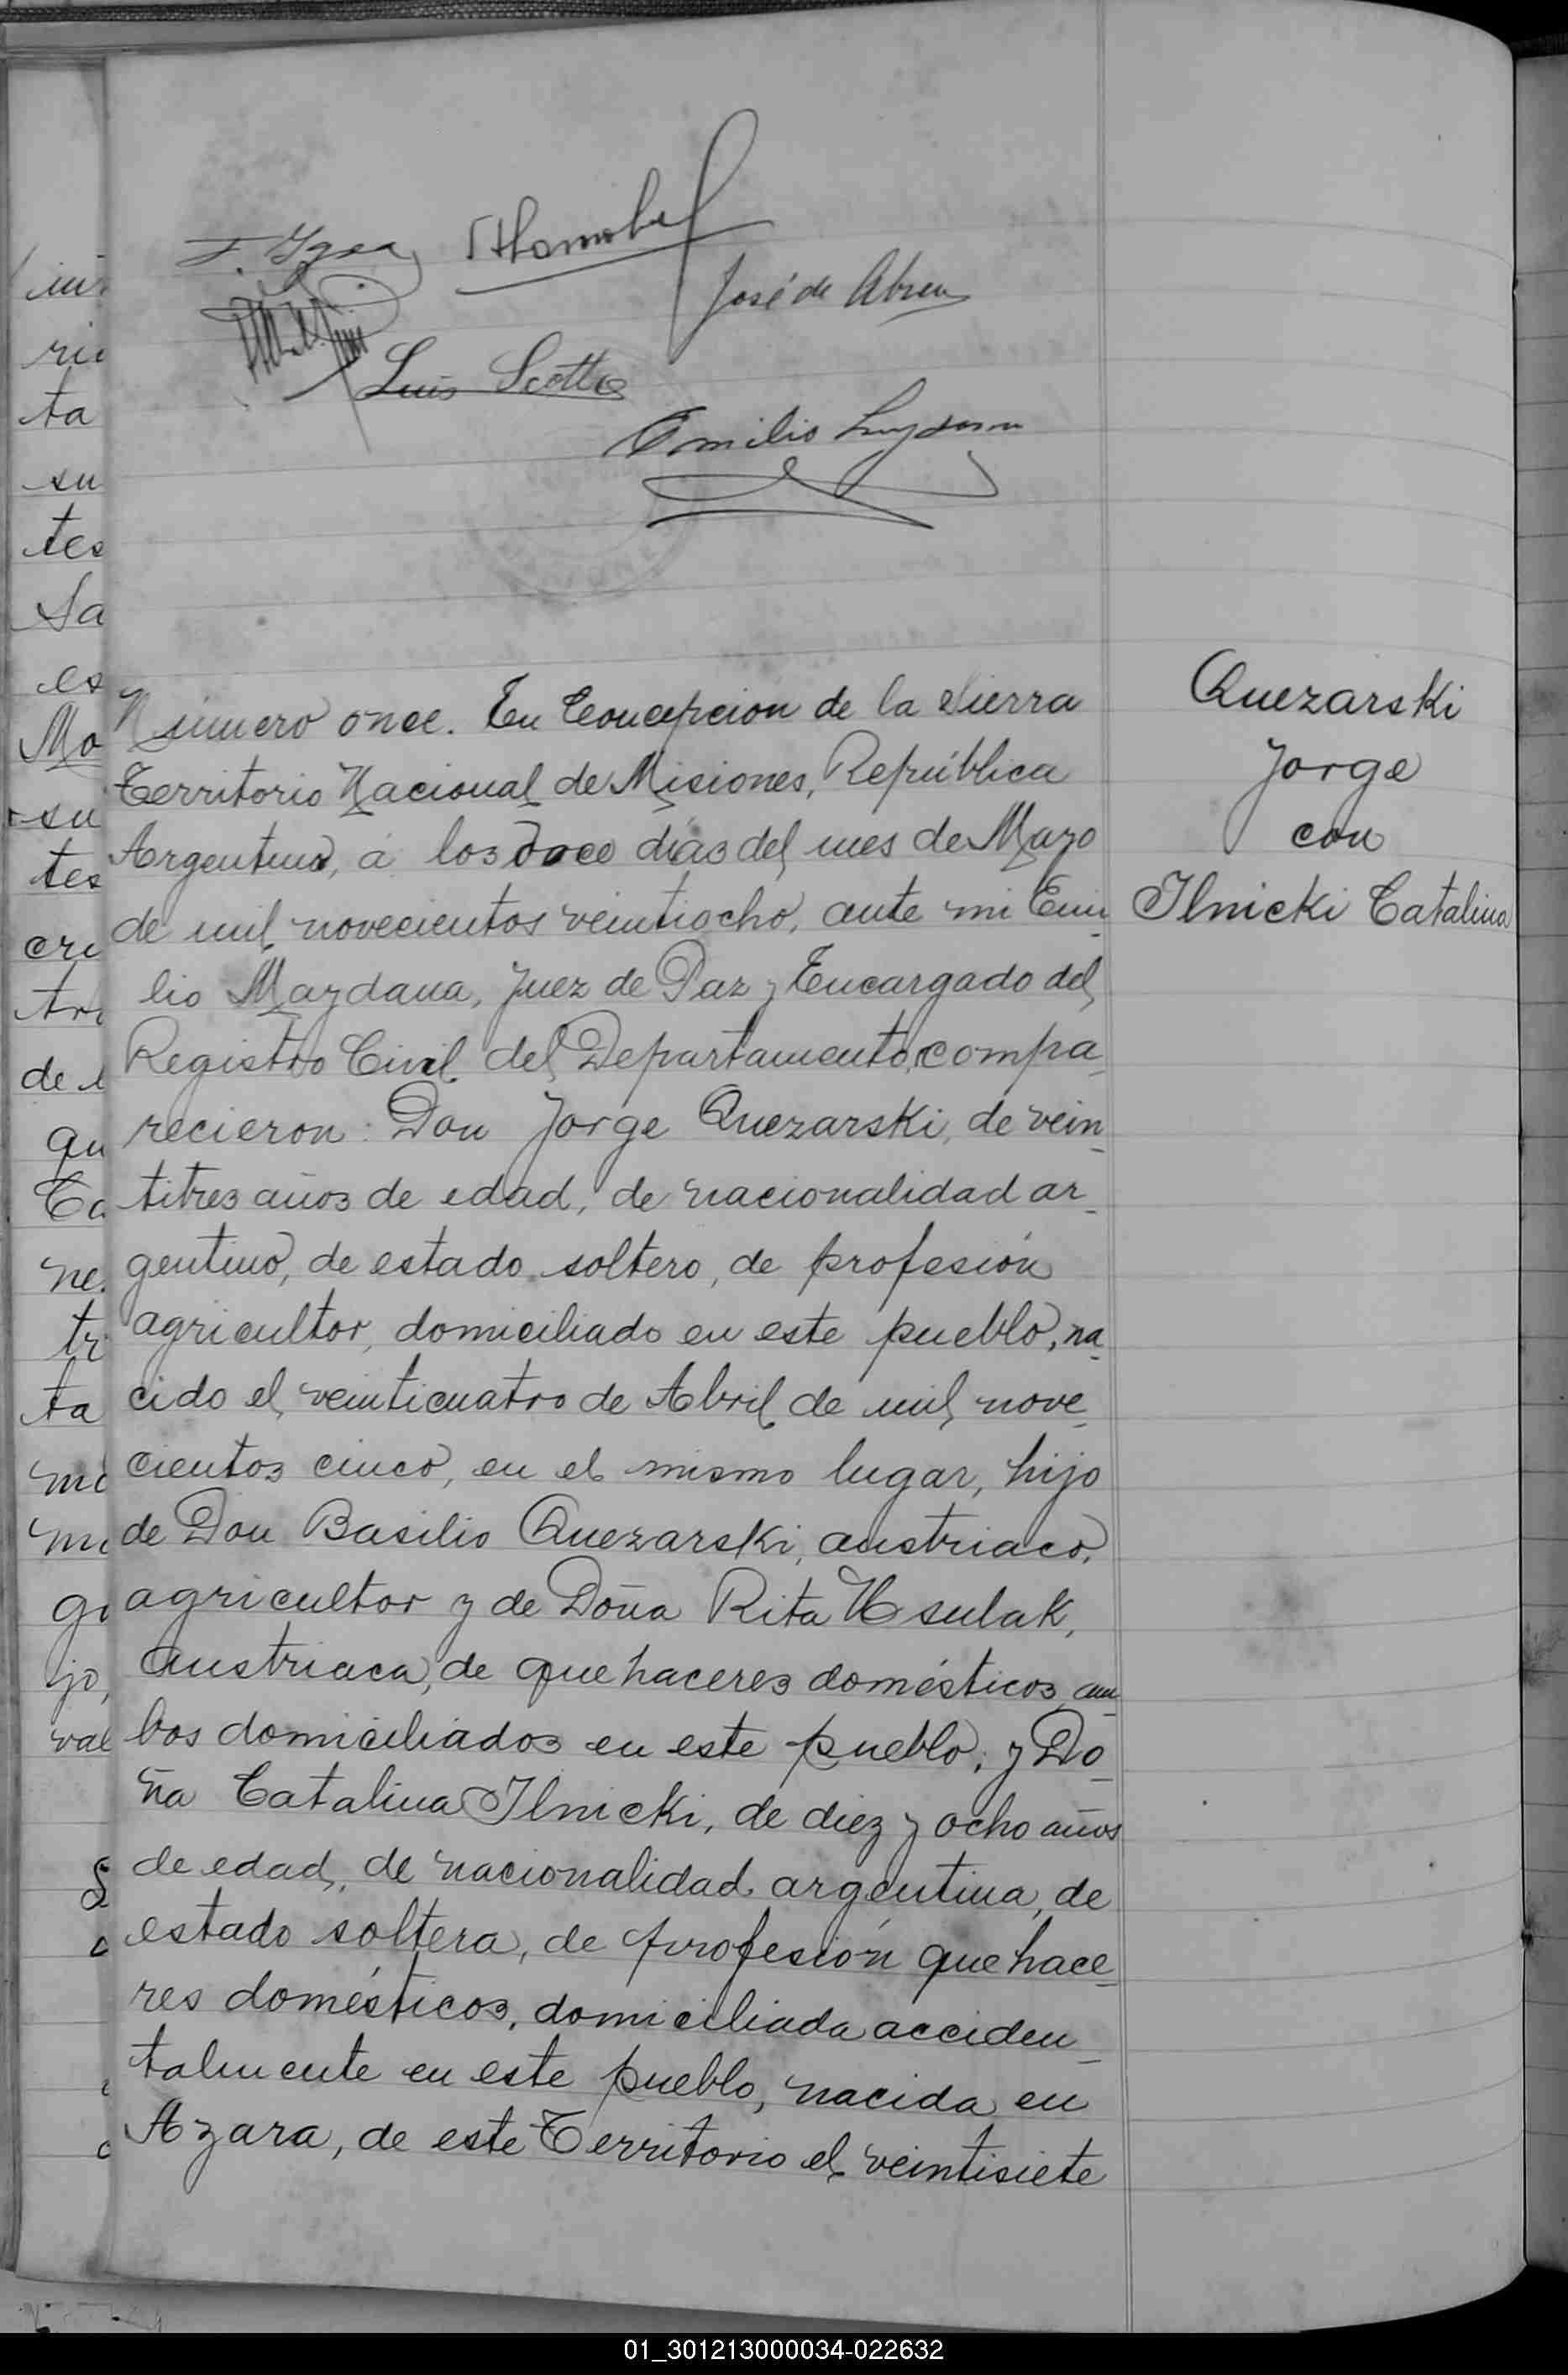 José de Abreu
Luis Scotto
Emilio
Número once. En Concepcion de la Sierra
Territorio Nacional de Misiones, República
Argentina, á los doce días del mes de Mayo
de mil novecientos veintiocho, ante mi Emi
lio Maydana, Juez de Paz y Encargado del
Registro Civil del Departamento, compa
recieron: Don Jorge Quezarski, de vein
titres años de edad, de nacionalidad ar
gentino, de estado soltero, de profesión
agricultor, domiciliado en este pueblo, na
cido el veinticuatro de Abril de mil nove
cientos cinco, en el mismo lugar, hijo
de Don Basilio Quezarski, austriaco,
agricultor y de Doña Rita
austriaca, de quehaceres domésticos, am
bos domiciliados en este pueblo; y Do
ña Catalina Ilnicki, de diez y ocho años
de edad, de nacionalidad argentina, de
estado soltera, de profesión quehace
res domésticos, domiciliada acciden
talmente en este pueblo, nacida en
Azara, de este Territorio el veintisiete
Quezarski
Jorge
con
Ilnicki Catalina
ta
su
tes
Sa
es
Mo
su
tes
cri
de
qu
Ca
ne
tr
ta
jo,
val
01_301213000034-022632